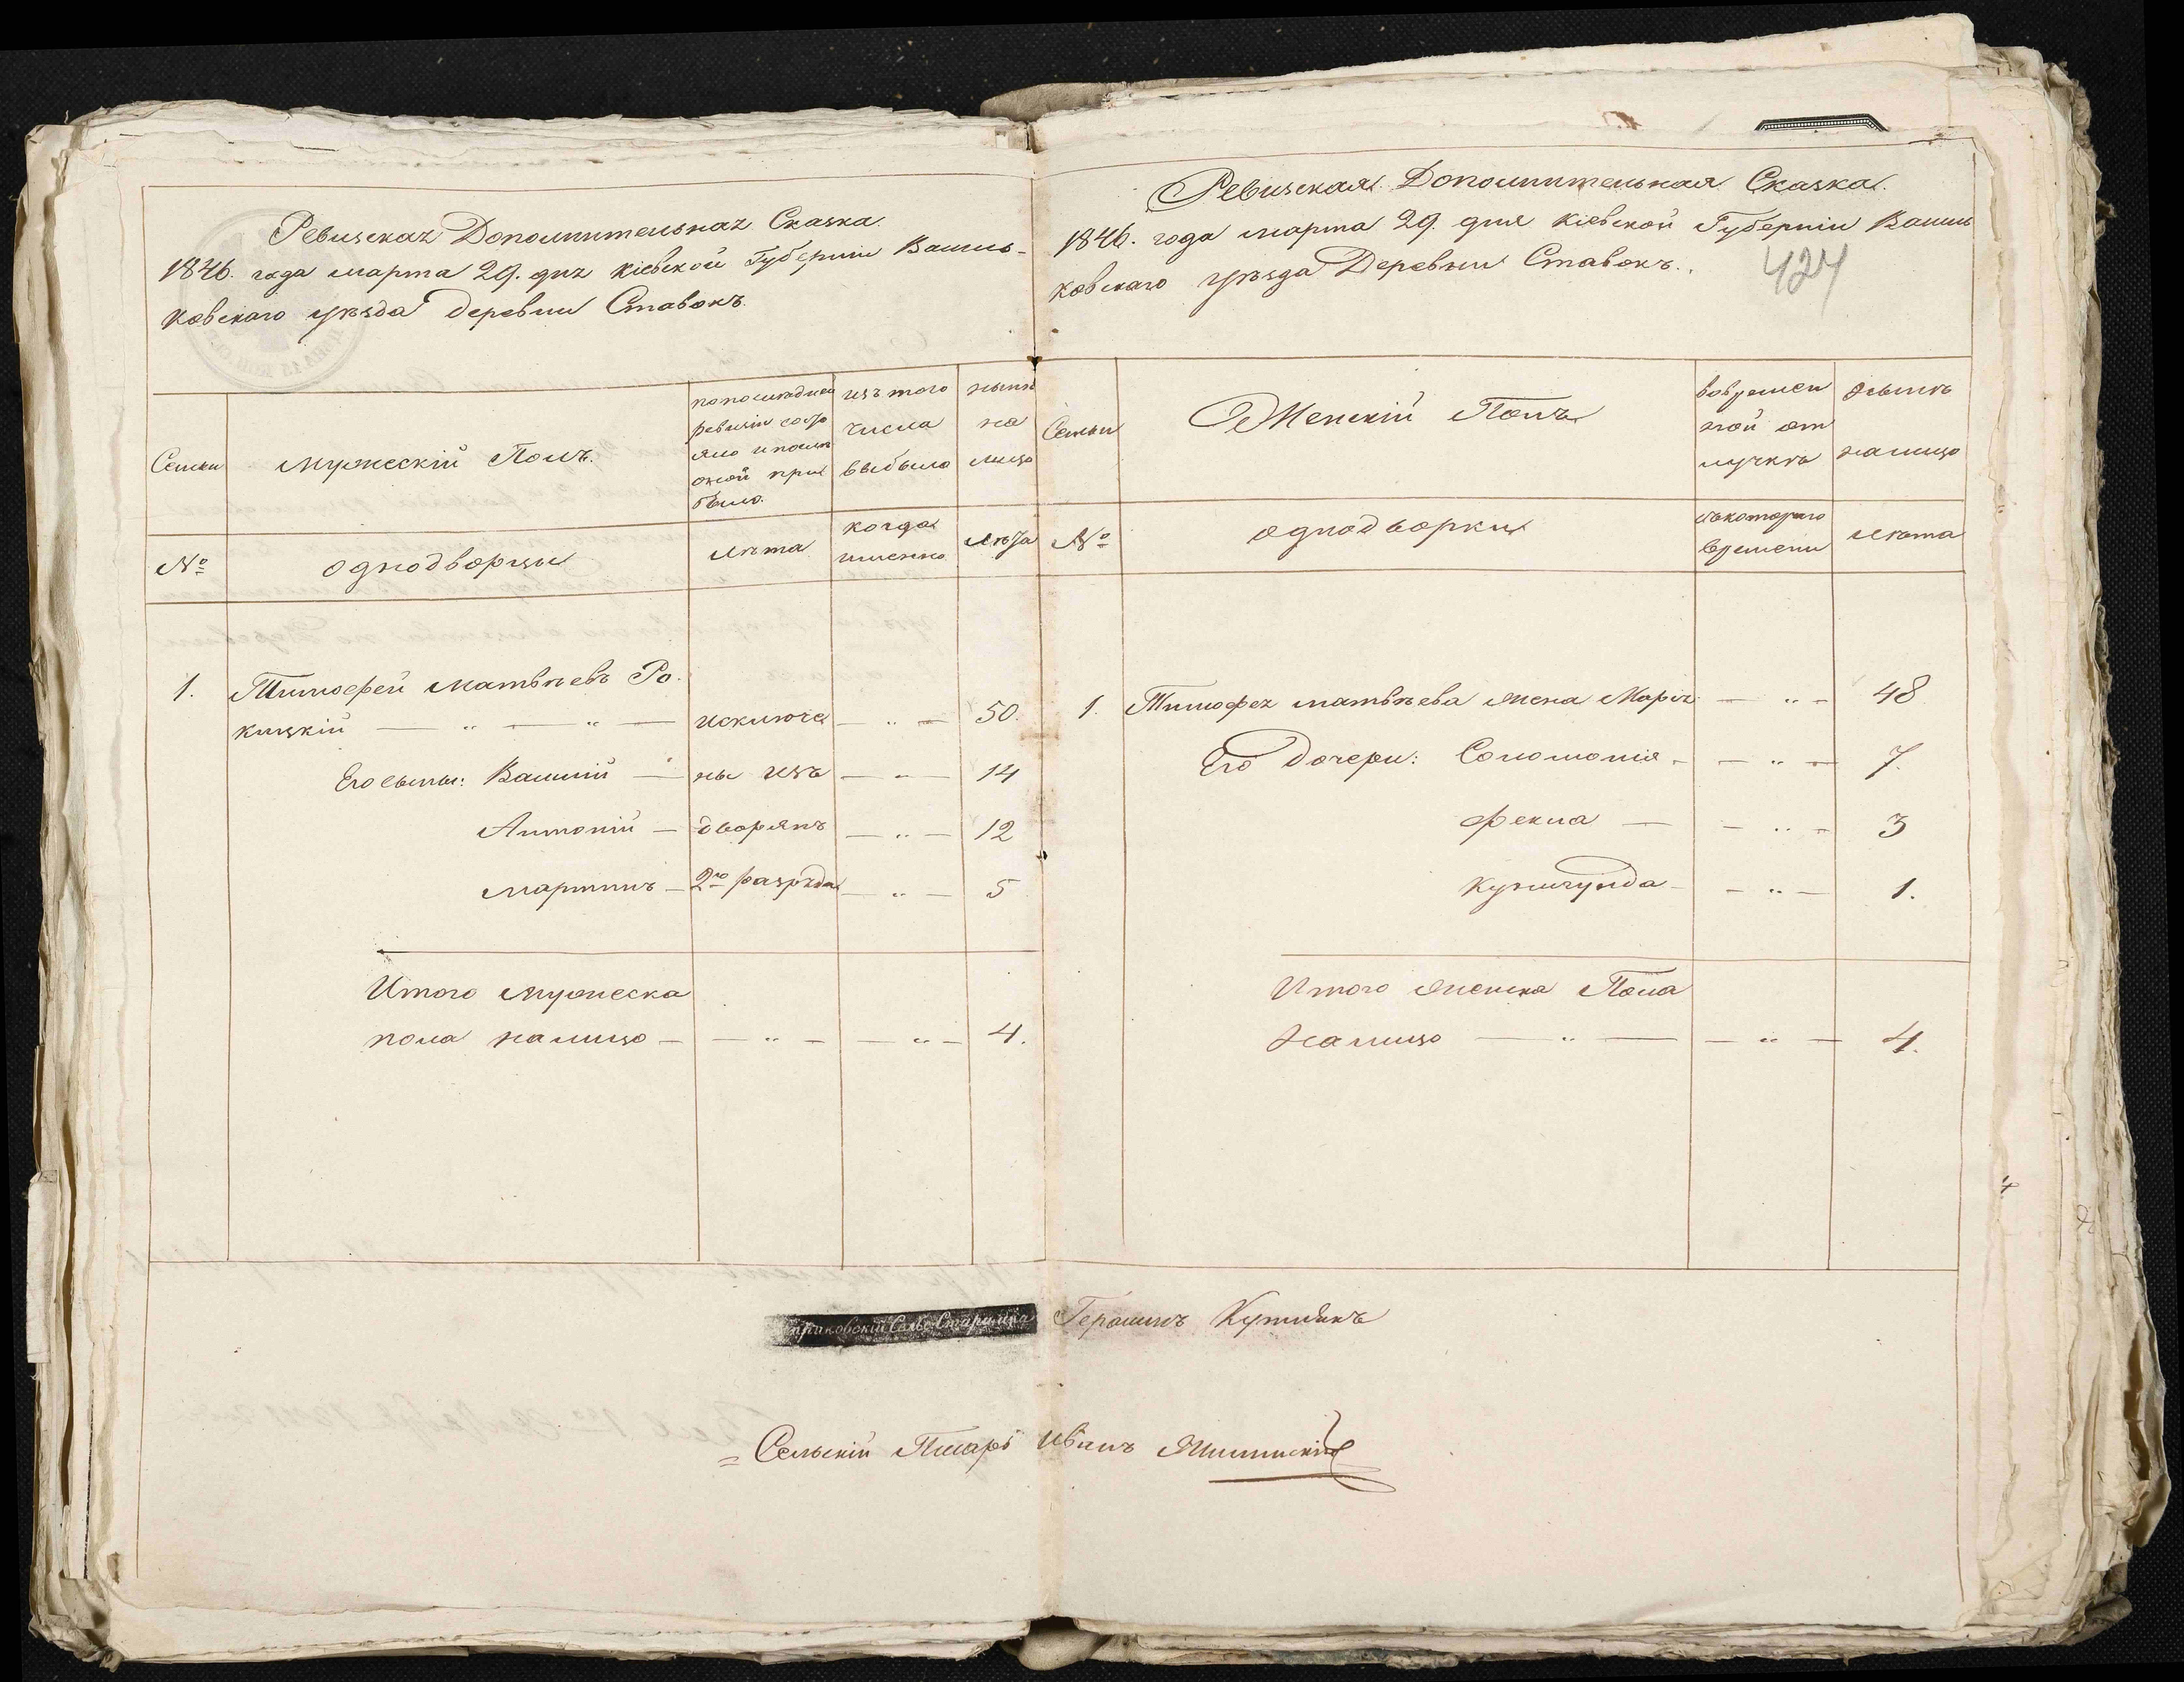 Ревизская Дополнительная Сказка.
1846. года марта 29. дня Кіевской Губерніи Василь-
ковскаго уѣзда деревни Ставокъ.
Семьи
Мужескій Полъ.
по последней
ревизіи состо
яло и после
оной при
было.
изъ того
числа
выбыло
нынѣ
на
лицо
№
однодворцы
лѣта
когда
именно
лѣта
1. Тимофей Матвѣевъ Ро-
кицкій — " — " — исключе — " — 50.
Его сыны: Василій — ны изъ — " — 14
Антоній — дворянъ — " — 12
Мартинъ — 2го разряда — " — 5
Итого мужеска
пола налицо — — " — — " — 4.
Ревизская Дополнительная Сказка.
1846. года марта 29. дня Кіевской Губерніи Василь
ковскаго уѣзда Деревни Ставокъ.
424
Семьи
Женскій Полъ
во времен
ной от
лучкѣ
нынѣ
налицо
№
однодворки
съ котораго
времени
лѣта
1. Тимофея Матвѣева жена Марія — " — 48
Его дочери: Соломонія — — " — 7.
Фекла — — " — 3
Кунигунда — — " — 1.
Итого женска Пола
налицо — " — — " — 4.
Сельс Старшина Герасимъ
= Сельскій Писарь Иванъ